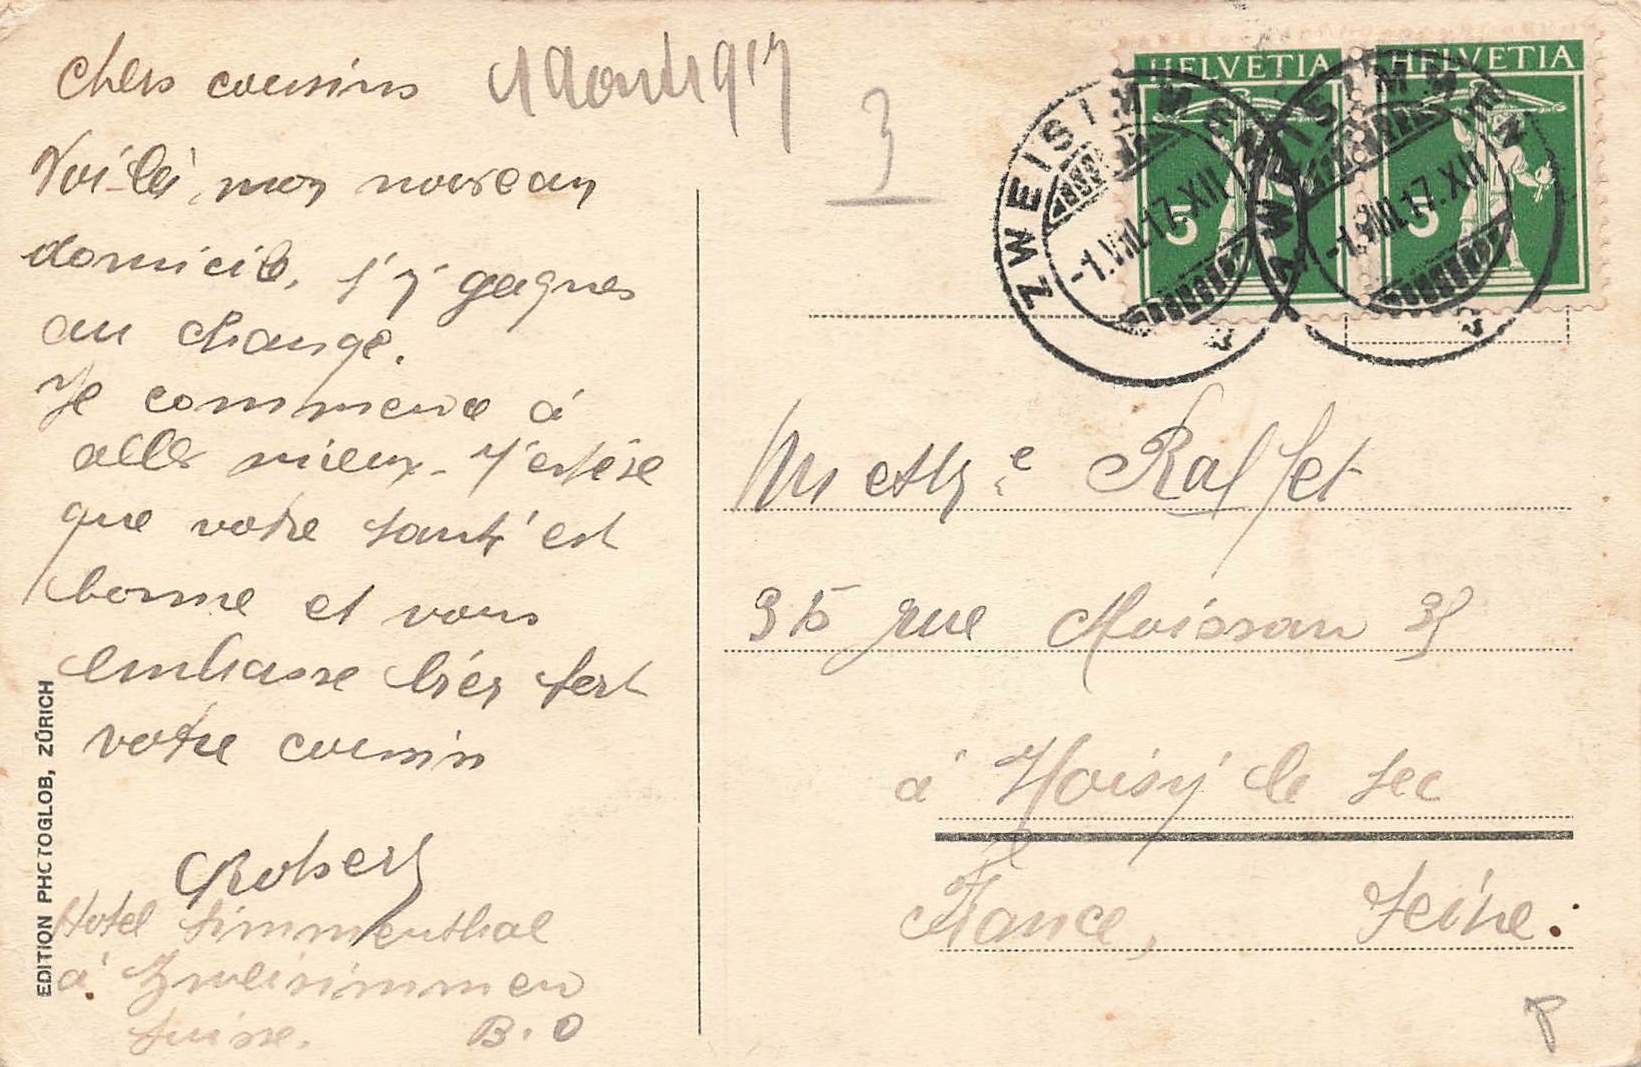 Chers cousins 1 Aout 1917
Voilà, mon nouveau
domicile, j'y gagnes
au change.
Je commence à
aller mieux. J'espère
que votre santé est
bonne et vous
embrasse bien fort
votre cousin
Robert
Hotel Simmenthal
à Zweisimmen
Suisse. B.O
EDITION PHOTOGLOB, ZÜRICH
3
HELVETIA HELVETIA
5 5
ZWEISIMMEN
-1.VIII.17.XII
ZWEISIMMEN
-1.VIII.17.XII
Mr et Me Raffet
35 rue Moissan 35
à Noisy le Sec
France, Seine.
P